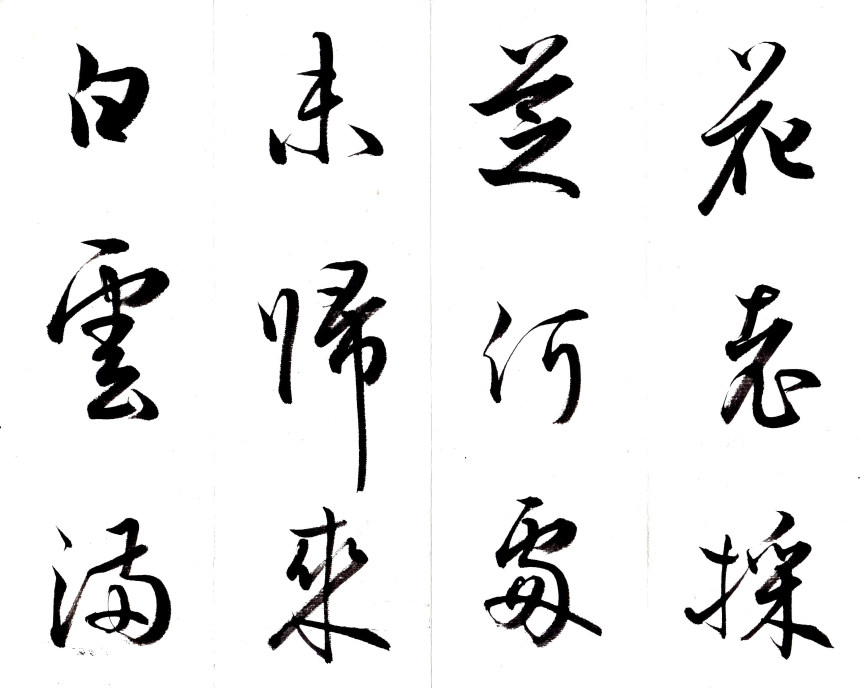 花老採
芝何處
未歸來
白雲滿